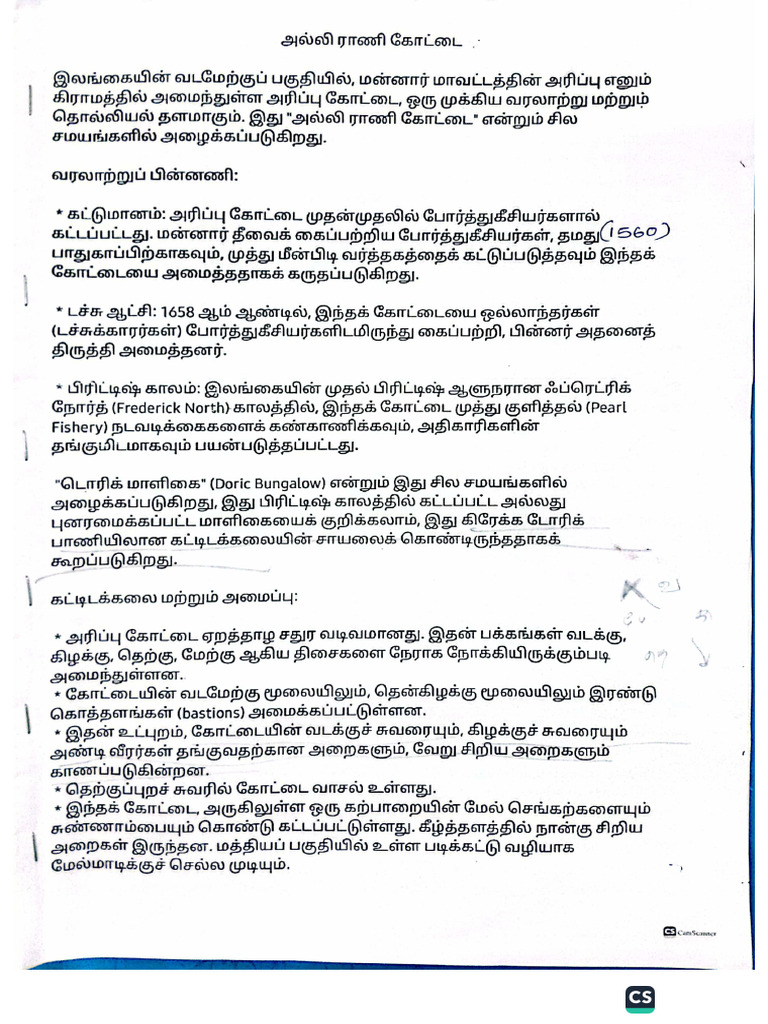 அல்லி ராணி கோட்டை
இலங்கையின் வடமேற்குப் பகுதியில், மன்னார் மாவட்டத்தின் அரிப்பு எனும்
கிராமத்தில் அமைந்துள்ள அரிப்பு கோட்டை, ஒரு முக்கிய வரலாற்று மற்றும்
தொல்லியல் தளமாகும். இது "அல்லி ராணி கோட்டை" என்றும் சில
சமயங்களில் அழைக்கப்படுகிறது.
வரலாற்றுப் பின்னணி:
* கட்டுமானம்: அரிப்பு கோட்டை முதன்முதலில் போர்த்துகீசியர்களால்
கட்டப்பட்டது. மன்னார் தீவைக் கைப்பற்றிய போர்த்துகீசியர்கள், தமது (1560)
பாதுகாப்பிற்காகவும், முத்து மீன்பிடி வர்த்தகத்தைக் கட்டுப்படுத்தவும் இந்தக்
கோட்டையை அமைத்ததாகக் கருதப்படுகிறது.
* டச்சு ஆட்சி: 1658 ஆம் ஆண்டில், இந்தக் கோட்டையை ஒல்லாந்தர்கள்
(டச்சுக்காரர்கள்) போர்த்துகீசியர்களிடமிருந்து கைப்பற்றி, பின்னர் அதனைத்
திருத்தி அமைத்தனர்.
* பிரிட்டிஷ் காலம்: இலங்கையின் முதல் பிரிட்டிஷ் ஆளுநரான ஃப்ரெட்ரிக்
நோர்த் (Frederick North) காலத்தில், இந்தக் கோட்டை முத்து குளித்தல் (Pearl
Fishery) நடவடிக்கைகளைக் கண்காணிக்கவும், அதிகாரிகளின்
தங்குமிடமாகவும் பயன்படுத்தப்பட்டது.
"டொரிக் மாளிகை" (Doric Bungalow) என்றும் இது சில சமயங்களில்
அழைக்கப்படுகிறது, இது பிரிட்டிஷ் காலத்தில் கட்டப்பட்ட அல்லது
புனரமைக்கப்பட்ட மாளிகையைக் குறிக்கலாம், இது கிரேக்க டோரிக்
பாணியிலான கட்டிடக்கலையின் சாயலைக் கொண்டிருந்ததாகக்
கூறப்படுகிறது.
கட்டிடக்கலை மற்றும் அமைப்பு:
* அரிப்பு கோட்டை ஏறத்தாழ சதுர வடிவமானது. இதன் பக்கங்கள் வடக்கு,
கிழக்கு, தெற்கு, மேற்கு ஆகிய திசைகளை நேராக நோக்கியிருக்கும்படி
அமைந்துள்ளன.
* கோட்டையின் வடமேற்கு மூலையிலும், தென்கிழக்கு மூலையிலும் இரண்டு
கொத்தளங்கள் (bastions) அமைக்கப்பட்டுள்ளன.
* இதன் உட்புறம், கோட்டையின் வடக்குச் சுவரையும், கிழக்குச் சுவரையும்
அண்டி வீரர்கள் தங்குவதற்கான அறைகளும், வேறு சிறிய அறைகளும்
காணப்படுகின்றன.
* தெற்குப்புறச் சுவரில் கோட்டை வாசல் உள்ளது.
* இந்தக் கோட்டை, அருகிலுள்ள ஒரு கற்பாறையின் மேல் செங்கற்களையும்
சுண்ணாம்பையும் கொண்டு கட்டப்பட்டுள்ளது. கீழ்த்தளத்தில் நான்கு சிறிய
அறைகள் இருந்தன. மத்தியப் பகுதியில் உள்ள படிக்கட்டு வழியாக
மேல்மாடிக்குச் செல்ல முடியும்.
CS CamScanner
CS